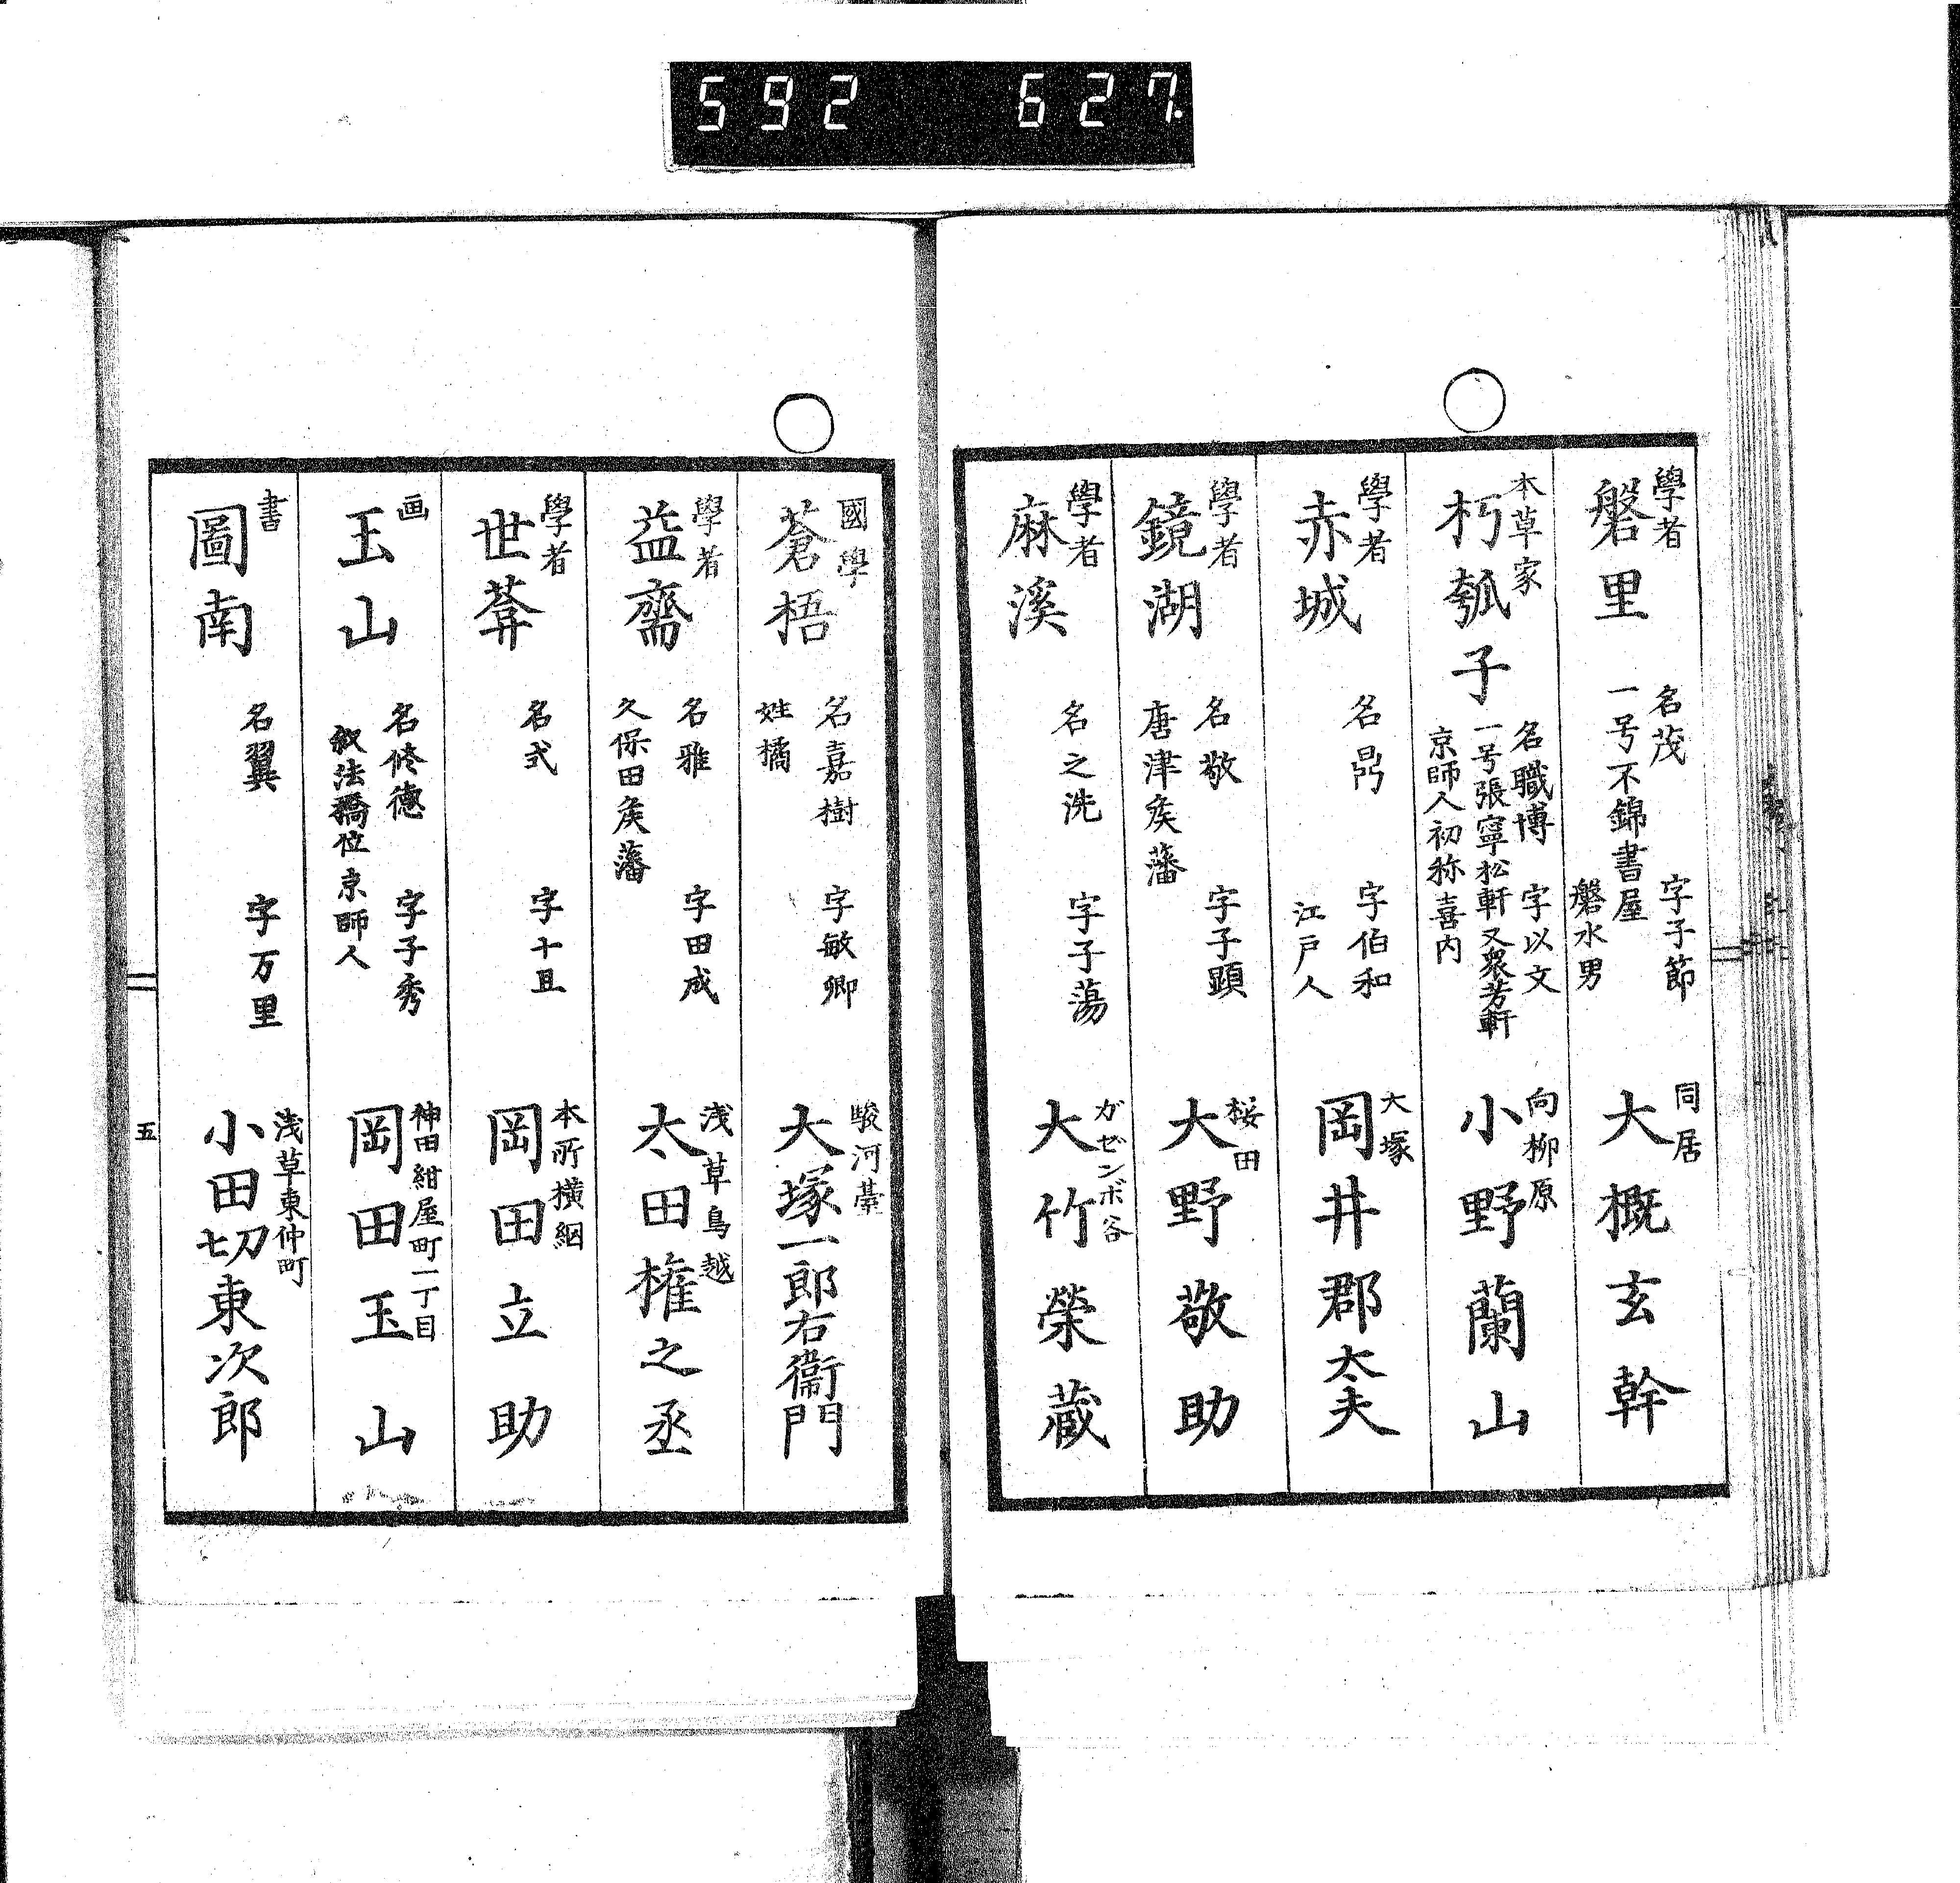 592 627.
學者
磐里
名茂 字子節
一号不錦書屋
磐水男
同居
大概玄幹
本草家
朽瓠子
名職博 字以文
一号張寧松軒又衆芳軒
京師人初称喜内
向柳原
小野蘭山
學者
赤城
名鼎 字伯和
江戸人
大塚
岡井郡太夫
學者
鏡湖
名敬 字子顕
唐津矦藩
桜田
大野敬助
學者
麻溪
名之洗 字子蕩
ガゼンボ谷
大竹榮蔵
國學
蒼梧
名嘉樹 字敏卿
姓橘
駿河臺
大塚一郎右衞門
學者
益齋
名雅 字田成
久保田矦藩
浅草鳥越
太田権之丞
學者
世葊
名弍 字十且
本所横綱
岡田立助
画
玉山
名修德 字子秀
叙法橋位京師人
神田紺屋町一丁目
岡田玉山
書
圖南
名翼 字万里
浅草東仲町
小田切東次郎
五